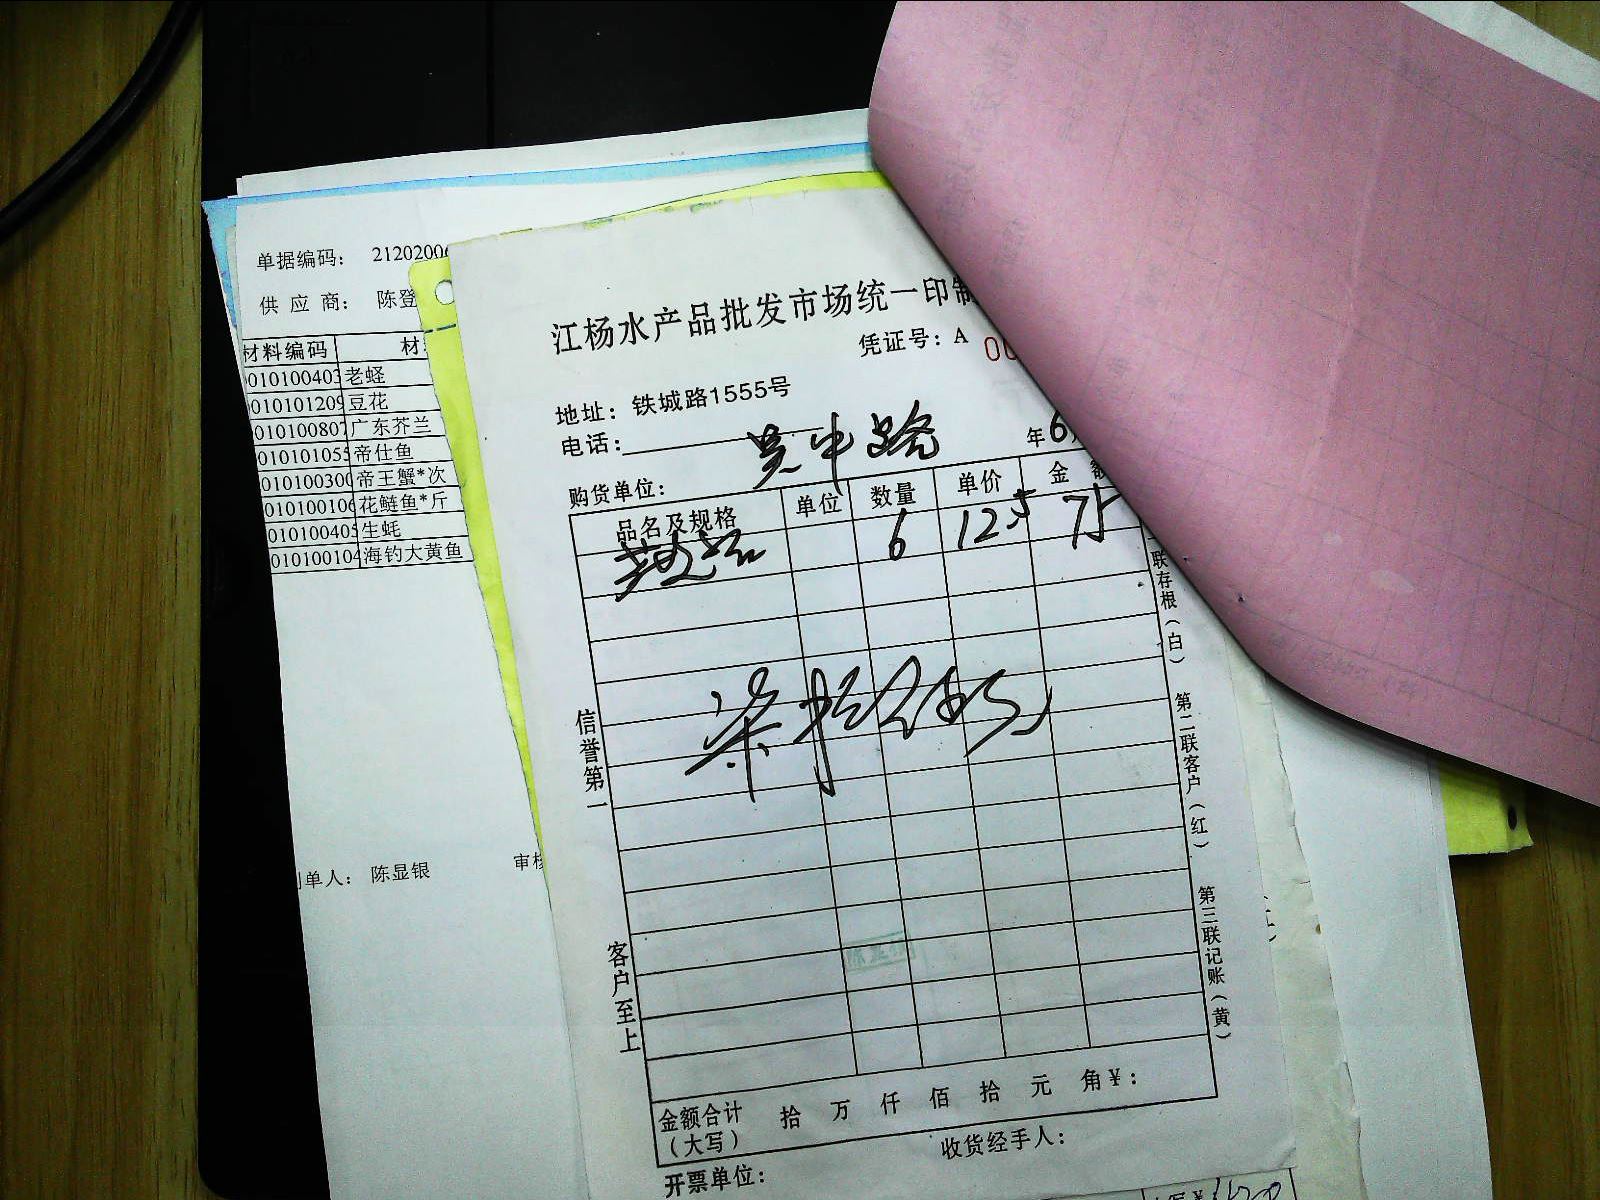 单据编码： 2120200
供 应 商： 陈登
材料编码 材
010100403 老蛏
010101209 豆花
010100807 广东芥兰
010101055 帝仕鱼
010100300 帝王蟹*次
010100106 花鲢鱼*斤
010100405 生蚝
010100104 海钓大黄鱼
制单人： 陈显银 审核
江杨水产品批发市场统一印制
凭证号：A 00
地址：铁城路1555号
电话：
购货单位： 吴中路 年6月
品名及规格 单位 数量 单价 金 额
6 125 75
柒拾伍
信誉第一
客户至上
联存根（白）
第二联客户（红）
第三联记账（黄）
金额合计（大写） 拾 万 仟 佰 拾 元 角 ¥：
收货经手人：
开票单位：